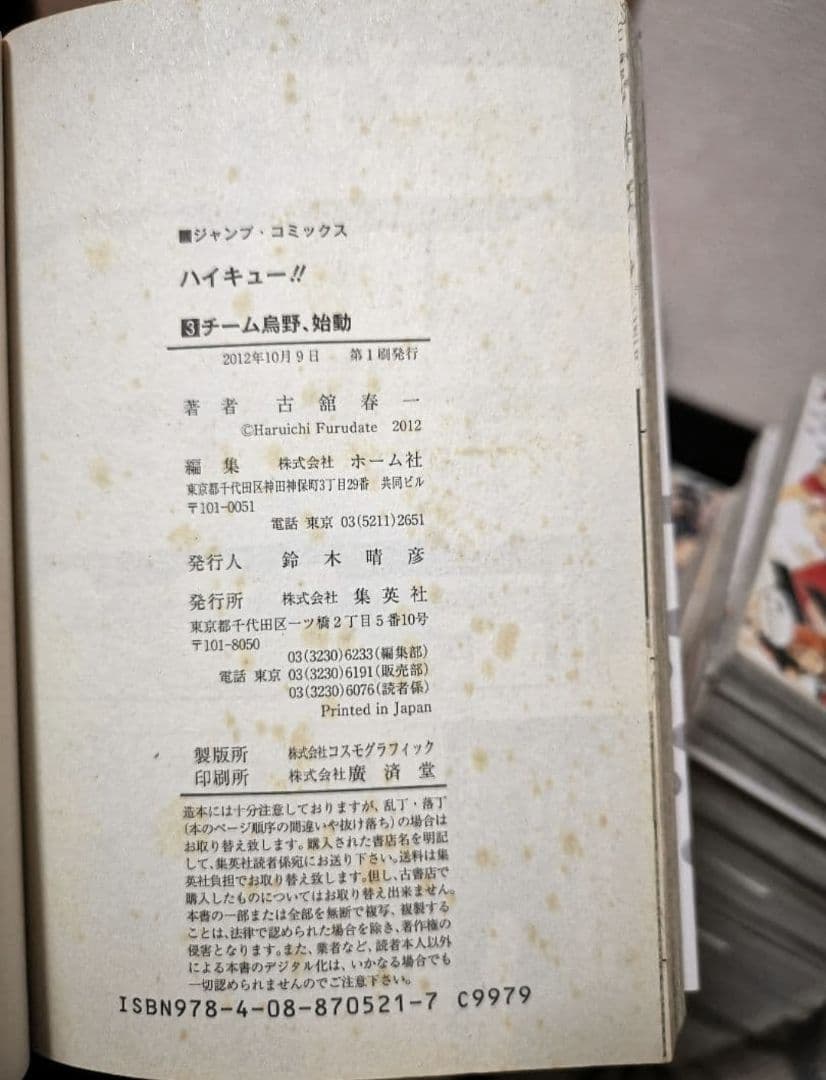 ■ジャンプ・コミックス
ハイキュー!!
3チーム烏野、始動
2012年10月9日 第1刷発行
著者 古舘春一
©Haruichi Furudate 2012
編集 株式会社 ホーム社
東京都千代田区神田神保町3丁目29番 共同ビル
〒101-0051
電話 東京 03(5211)2651
発行人 鈴木晴彦
発行所 株式会社 集英社
東京都千代田区一ツ橋2丁目5番10号
〒101-8050
03(3230)6233(編集部)
電話 東京 03(3230)6191(販売部)
03(3230)6076(読者係)
Printed in Japan
製版所 株式会社コスモグラフィック
印刷所 株式会社廣済堂
造本には十分注意しておりますが、乱丁・落丁
(本のページ順序の間違いや抜け落ち)の場合は
お取り替え致します。購入された書店名を明記
して、集英社読者係宛にお送り下さい。送料は集
英社負担でお取り替え致します。但し、古書店で
購入したものについてはお取り替え出来ません。
本書の一部または全部を無断で複写、複製する
ことは、法律で認められた場合を除き、著作権の
侵害となります。また、業者など、読者本人以外
による本書のデジタル化は、いかなる場合でも
一切認められませんのでご注意下さい。
ISBN978-4-08-870521-7 C9979